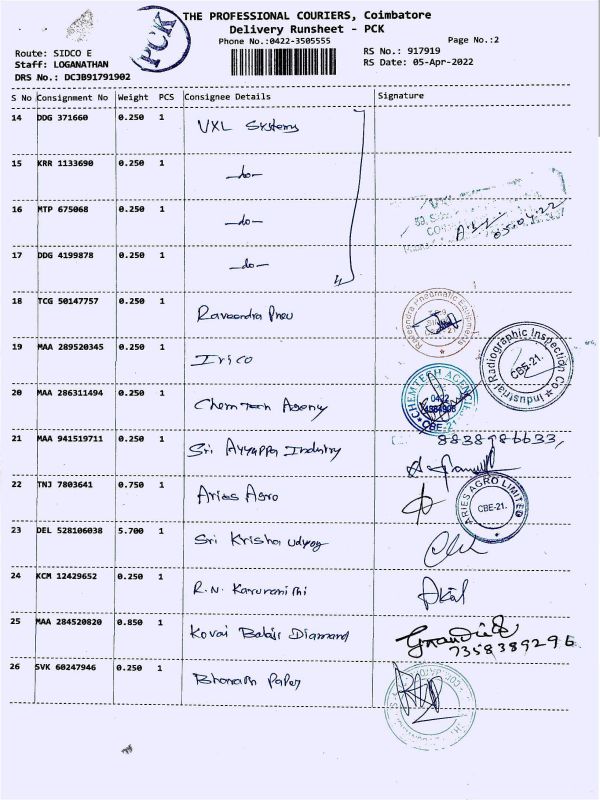 THE PROFESSIONAL COURIERS, Coimbatore
Delivery Runsheet - PCK
PCK
Phone No.:0422-3505555
Page No.:2
Route: SIDCO E
Staff: LOGANATHAN
DRS No.: DCJB91791902
RS No.: 917919
RS Date: 05-Apr-2022
S No Consignment No Weight PCS Consignee Details Signature
14 DDG 371660 0.250 1 VXL Systems
15 KRR 1133690 0.250 1 -do-
16 MTP 675068 0.250 1 -do-
05.04.22
17 DDG 4199878 0.250 1 -do-
18 TCG 50147757 0.250 1 Raveendra Pneu
Pneumatic Equipments
19 MAA 289520345 0.250 1 Irico
Industrial Radiographic Inspection Co
CBE-21.
20 MAA 286311494 0.250 1 Chemtech Agency
CHEMTECH AGENCIES
0422
CBE-21
21 MAA 941519711 0.250 1 Sri Ayyappa Industry
8838986633,
22 TNJ 7803641 0.750 1 Aries Agro
ARIES AGRO LIMITED
CBE-21.
23 DEL 528106038 5.700 1 Sri Krishna udyog
24 KCM 12429652 0.250 1 R.N. Karunanithi
25 MAA 284520820 0.850 1 Kovai Balaji Diamand
7358389296
26 SVK 60247946 0.250 1 Bhonam Paper